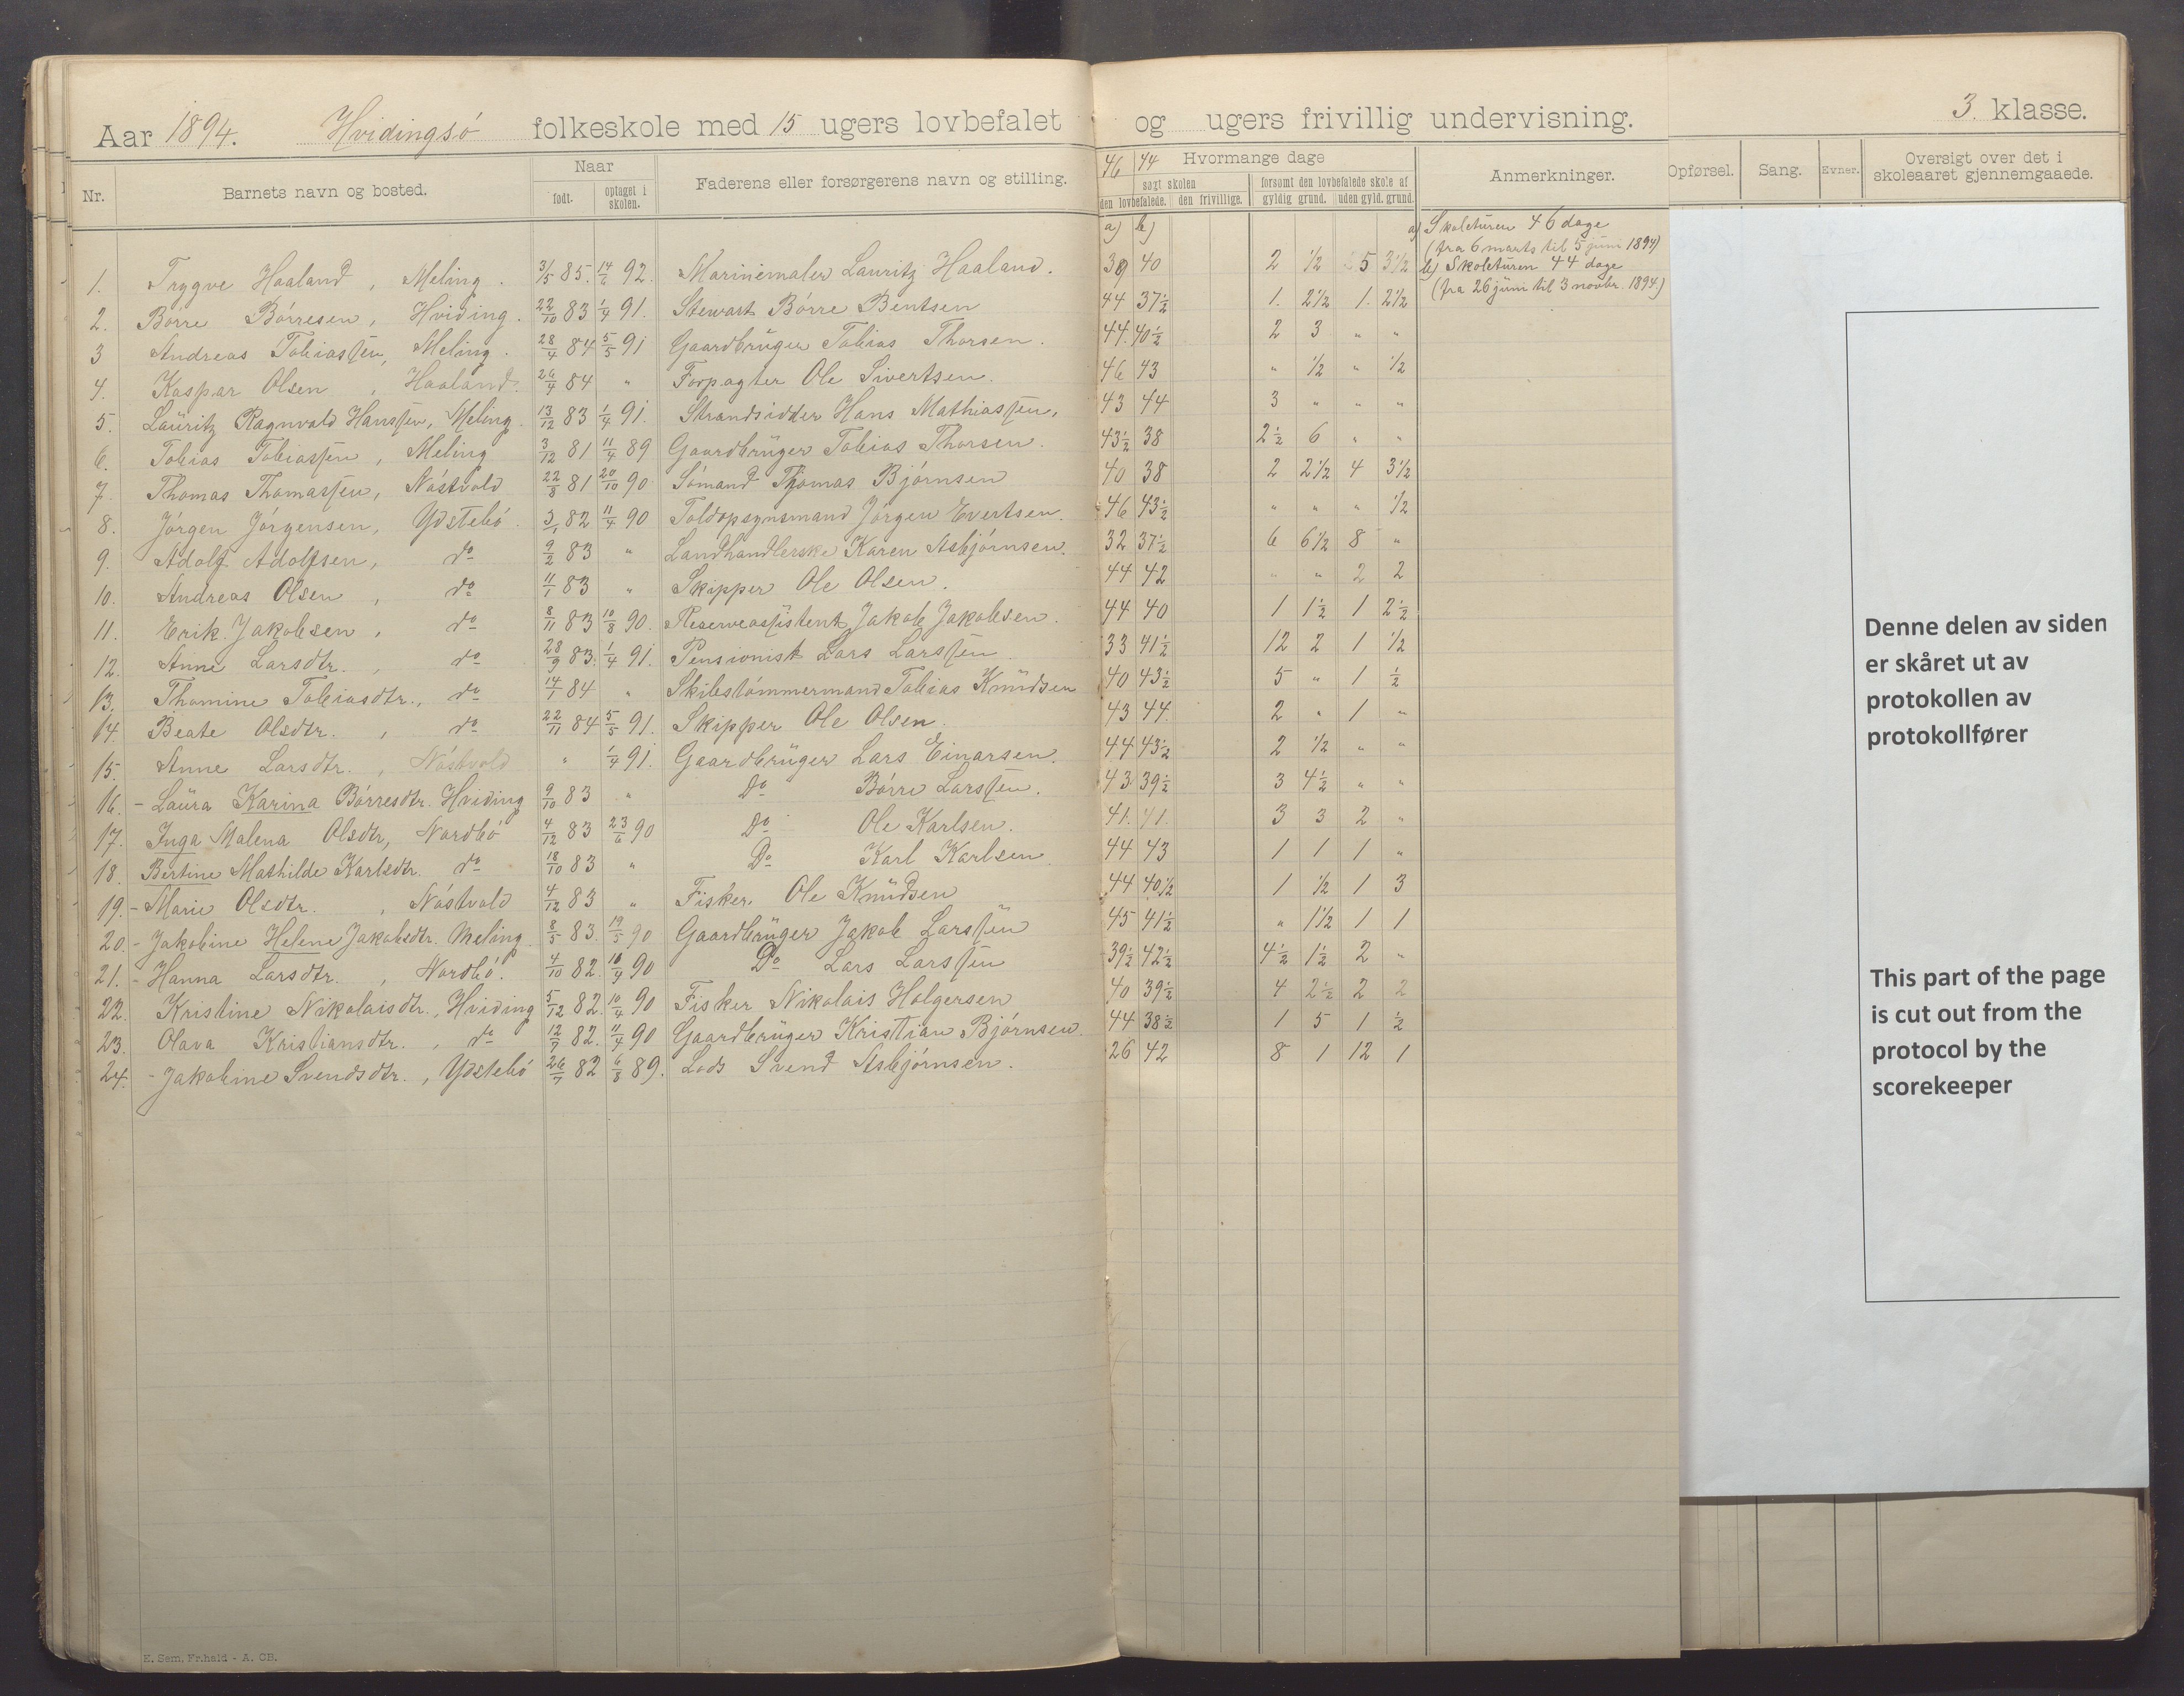 Aar 1894. Hvidingsö folkeskole med 15 ugers lovbefalet og ugers frivillig undervisning. 3. klasse.
Nr. Barnets navn og bosted. Naar født. optaget i skolen. Faderens eller forsørgerens navn og stilling. 46 44 Hvormange dage søgt skolen den lovbefalede. den frivillige. forsømt den lovbefalede skole af gyldig grund. uden gyld. grund. Anmerkninger. Opførsel. Sang. Evner. Oversigt over det i skoleaaret gjennemgaaede.
a) b) a) Skoleturen 46 dage
(fra 6 marts til 5 juni 1894)
b) Skoleturen 44 dage
(fra 26 juni til 3 novbr. 1894)
1. Trygve Haaland, Meling. 3/5 85. 14/6 92. Marinemaler Lauritz Haaland. 39 40 2 1/2 5 3 1/2
2. Börre Börresen, Hviding. 22/10 83 1/4 91. Stewart Börre Bentsen 44 37 1/2 1. 2 1/2 1. 2 1/2
3 Andreas Tobiassen, Meling. 28/4 84 5/5 91 Gaardbrüger Tobias Thorsen. 44. 40 1/2 2 3 " "
4. Kaspar Olsen, Haaland. 26/4 84 " Forpagter Ole Sivertsen. 46 43 " 1/2 " 1/2
5. Laüritz Ragnvald Hanssen, Meling. 13/12 83 1/4 91. Strandsidder Hans Mathiassen. 43 44 3 " " "
6. Tobias Tobiassen, Meling 3/12 81 11/4 89 Gaardbrüger Tobias Thorsen. 43 1/2 38 2 1/2 6 " "
7. Thomas Thomassen, Nöstvold 22/8 81 20/10 90 Sömand Thomas Björnsen 40 38 2 2 1/2 4 3 1/2
8. Jörgen Jörgensen, Ydstebö. 3/1 82 11/4 90 Toldopsynsmand Jörgen Evertsen. 46 43 1/2 " " " 1/2
9. Adolf Adolfsen, do 9/2 83 " Landhandlerske Karen Asbjörnsen. 32 37 1/2 6 6 1/2 8 "
10. Andreas Olsen, do 11/1 83 " Skipper Ole Olsen. 44 42 " " 2 2
11. Erik Jakobsen, do 8/11 83 10/8 90. Reserveassistent Jakob Jakobsen. 44 40 1 1 1/2 1 2 1/2
12. Anne Larsdtr., do 28/9 83. 1/4 91. Pensionist Lars Larssen 33 41 1/2 12 2 1 1/2
13. Thomine Tobiasdtr., do 14/1 84 " Skibstömmermand Tobias Knüdsen 40 43 1/2 5 " 1 1/2
14. Beate Olsdtr., do 22/11 84 5/5 91. Skipper Ole Olsen. 43 44. 2 " 1 "
15. Anne Larsdtr., Nöstvold " 1/4 91. Gaardbrüger Lars Einarsen. 44 43 1/2 2 1/2 " "
16. - Laüra Karina Börresdtr. Hviding 9/10 83 " Do Börre Larssen. 43 39 1/2 3 4 1/2 " "
17. Inga Malena Olsdtr, Nordbö 4/12 83 23/6 90 Do Ole Karlsen. 41. 41. 3 3 2 "
18. Bertine Mathilde Karlsdtr. do 18/10 83 " Do Karl Karlsen 44 43 1 1 1 "
19. - Marie Olsdtr., Nöstvold 4/12 83 " Fisker. Ole Knüdsen 44 40 1/2 1 1/2 1 3
20. - Jakobine Helene Jakobsdtr. Meling 8/5 83. 19/5 90 Gaardbrüger Jakob Larssen 45 41 1/2 " 1 1/2 1 1
21. - Hanna Larsdtr., Nordbö. 4/10 82. 10/4 90 Do Lars Larssen 39 1/2 42 1/2 4 1/2 1 1/2 2 "
22. Kristine Nikolaisdtr., Hviding 5/12 82. 10/4 90 Fisker Nikolais Holgersen 40 39 1/2 4 2 1/2 2 2
23. Olava Kristiansdtr., do 12/7 82. 11/4 90 Gaardbrüger Kristian Björnsen. 44 38 1/2 1 5 1 1/2
24. - Jakobine Svendsdtr., Ydstebö 26/7 82 6/8 89. Lods Svend Asbjörnsen. 26 42 8 1 12 1
Denne delen av siden
er skåret ut av
protokollen av
protokollfører
This part of the page
is cut out from the
protocol by the
scorekeeper
E. Sem. Fr.hald - A. CB.